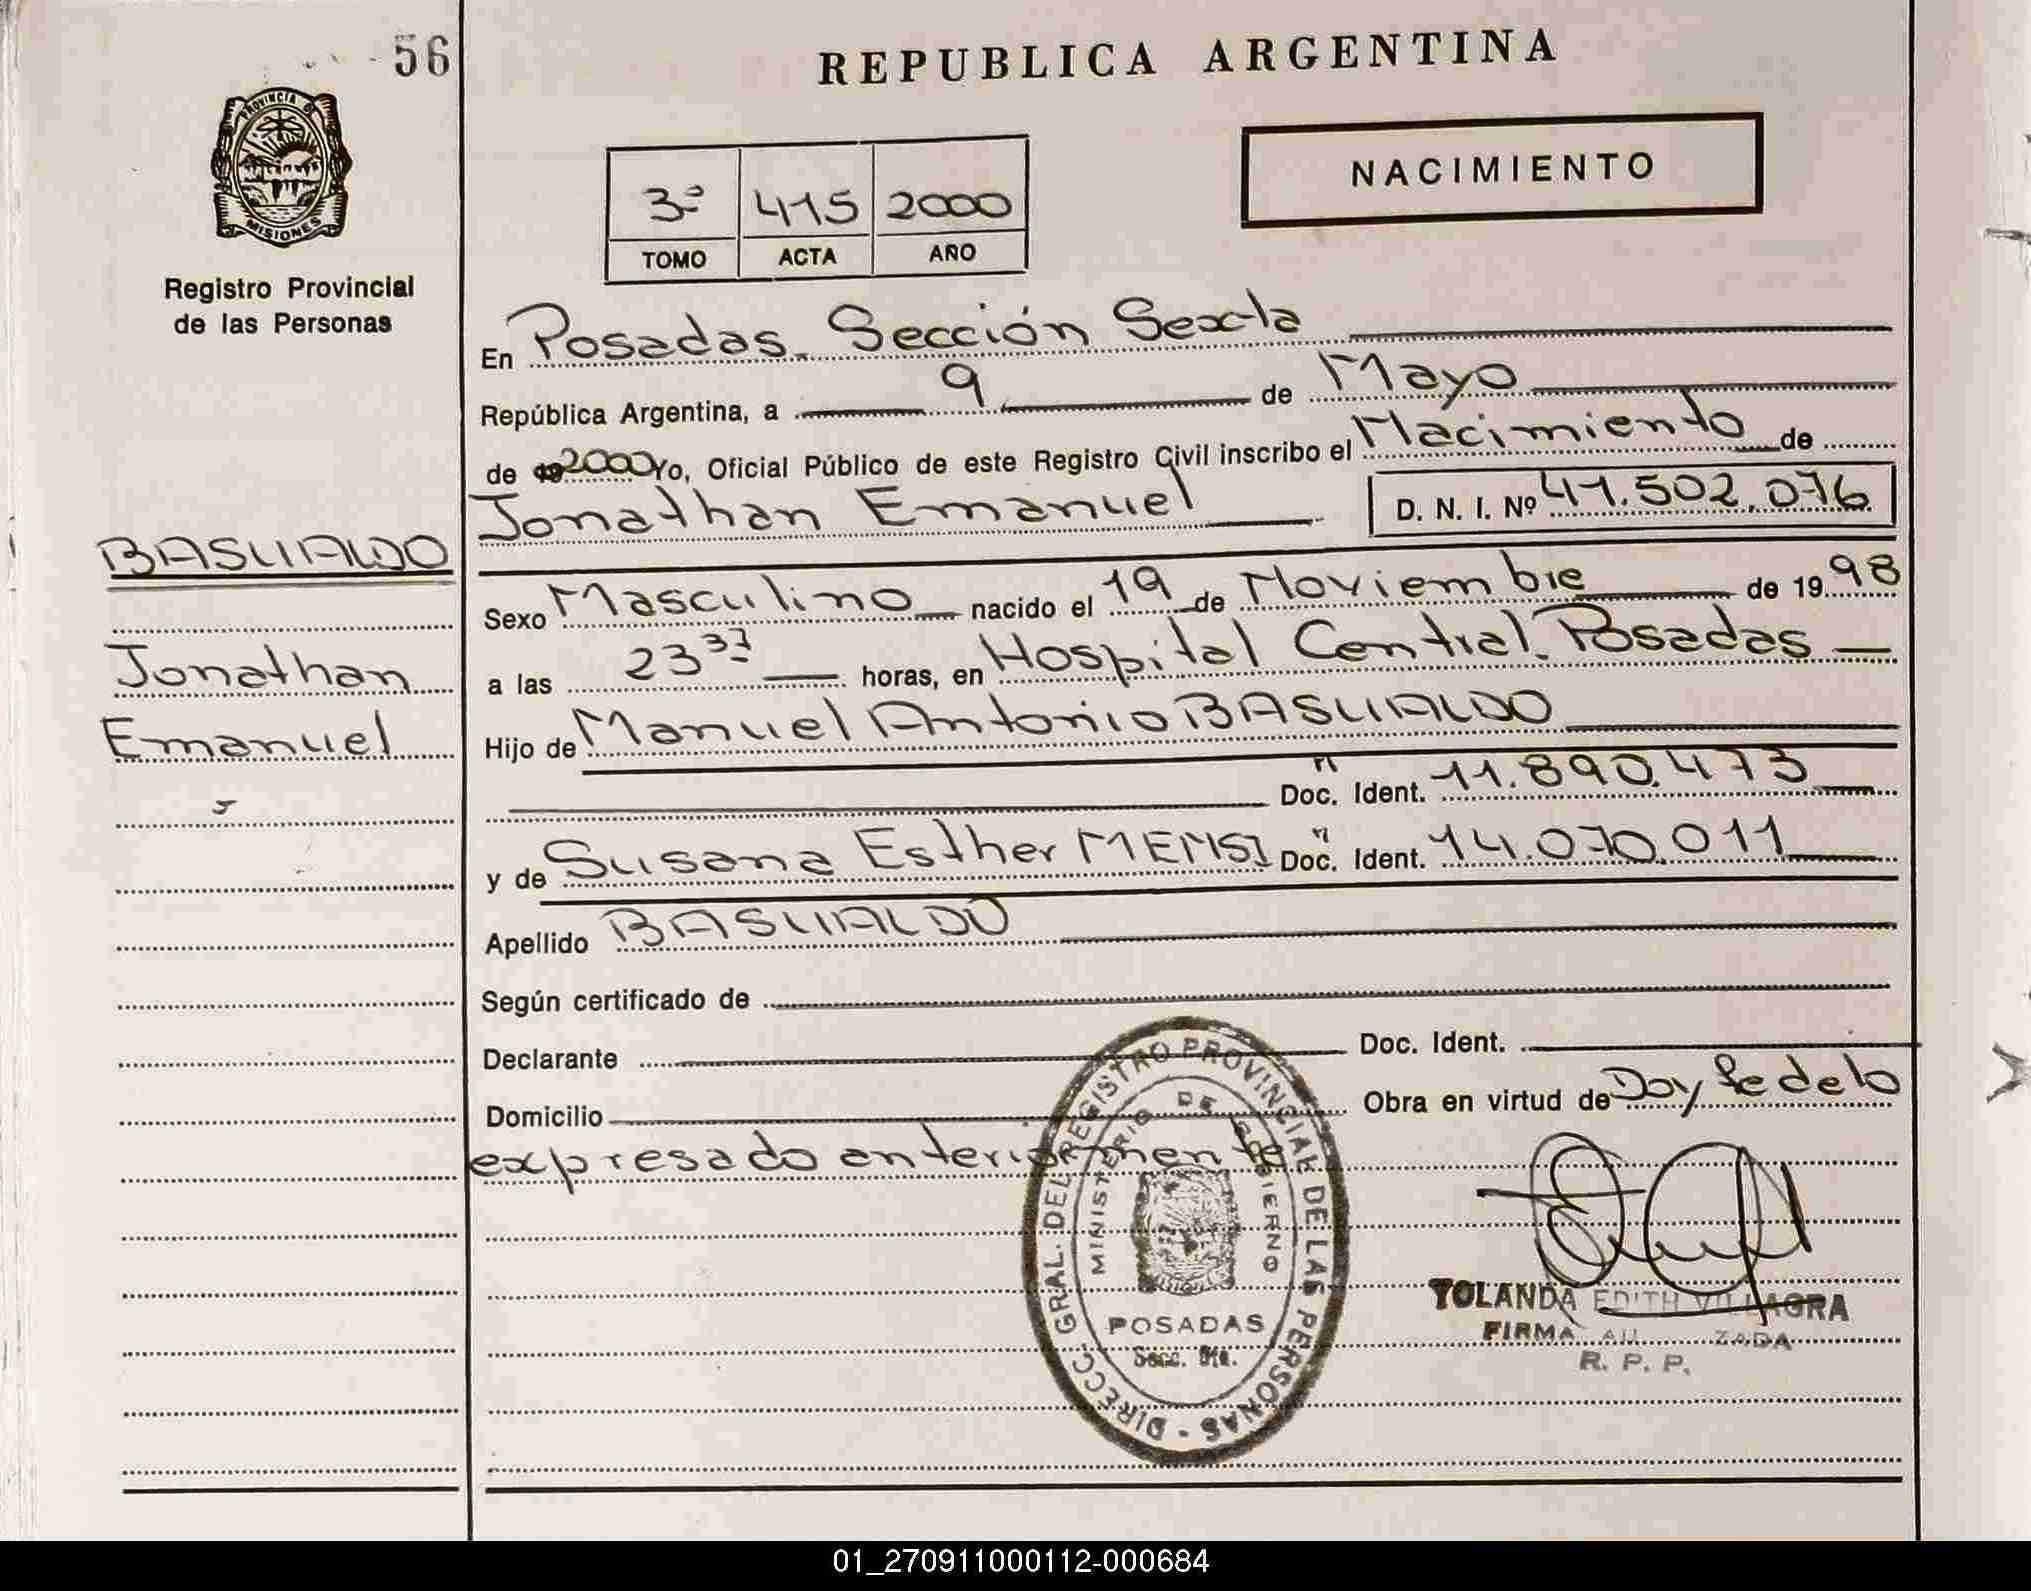 56
REPUBLICA ARGENTINA
PROVINCIA DE
MISIONES
NACIMIENTO
3º 415 2000
TOMO ACTA AÑO
Registro Provincial
de las Personas
En Posadas. Sección Sexta
República Argentina, a 9 de Mayo
de 2000 Yo, Oficial Público de este Registro Civil inscribo el Nacimiento de
Jonathan Emanuel D. N. I. Nº 41.502.076
BASUALDO
Sexo Masculino nacido el 19 de Noviembre de 1998
Jonathan
a las 23 37 horas, en Hospital Central. Posadas
Emanuel
Hijo de Manuel Antonio BASUALDO
Doc. Ident. 11.890.473
y de Susana Esther Doc. Ident. 14.070.011
Apellido BASUALDO
Según certificado de
Declarante Doc. Ident.
Domicilio Obra en virtud de Doy fe de lo
expresado anteriormente
DIRECC. GRAL. DEL REGISTRO PROVINCIAL DE LAS PERSONAS
MINISTERIO DE GOBIERNO
POSADAS
Secc. 6ta.
YOLANDA EDITH VILLAGRA
FIRMA
R. P. P.
01_270911000112-000684